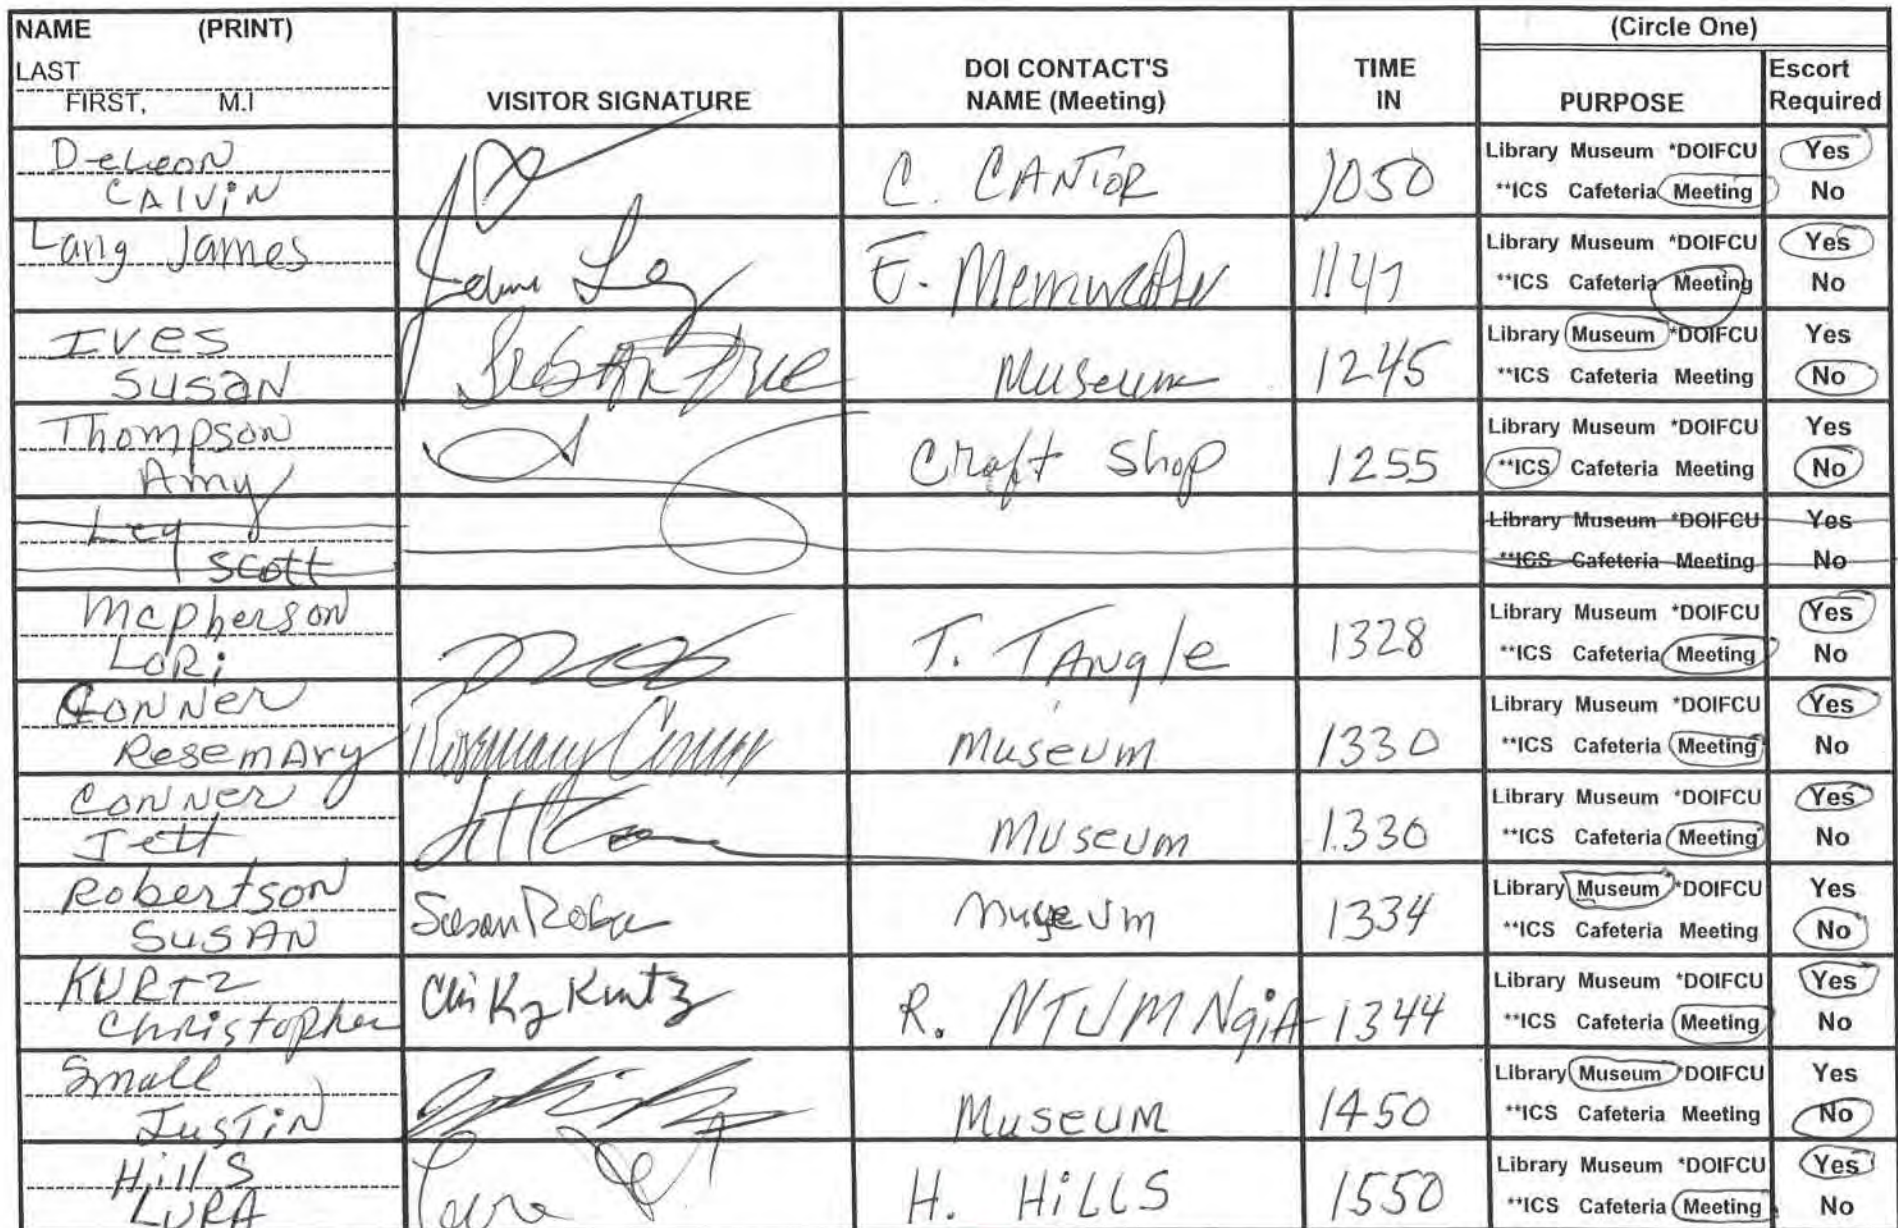 NAME (PRINT)
LAST
FIRST, M.I
VISITOR SIGNATURE
DOI CONTACT'S
NAME (Meeting)
TIME
IN
(Circle One)
PURPOSE
Escort
Required
DeLeon
CAlViN
C. CANTOR
1050
Library Museum *DOIFCU Yes
**ICS Cafeteria Meeting No
Lang James
E.
1147
Library Museum *DOIFCU Yes
**ICS Cafeteria Meeting No
Ives
SUSaN
Susan Ive
Museum
1245
Library Museum *DOIFCU Yes
**ICS Cafeteria Meeting No
Thompson
Amy
Craft Shop
1255
Library Museum *DOIFCU Yes
**ICS Cafeteria Meeting No
Ley
Scott
Library Museum *DOIFCU Yes
**ICS Cafeteria Meeting No
Mcpherson
LoRi
T. TAngle
1328
Library Museum *DOIFCU Yes
**ICS Cafeteria Meeting No
CONNer
ResemAry
Rosemary Conner
MuseUm
1330
Library Museum *DOIFCU Yes
**ICS Cafeteria Meeting No
CONNer
Jett
MUseUm
1330
Library Museum *DOIFCU Yes
**ICS Cafeteria Meeting No
Robertson
SUSAN
Susan Robe
MuseUm
1334
Library Museum *DOIFCU Yes
**ICS Cafeteria Meeting No
KURtz
Christopher
Kurtz
R. NTUMNgiA
1344
Library Museum *DOIFCU Yes
**ICS Cafeteria Meeting No
Small
JusTiN
MuseUM
1450
Library Museum *DOIFCU Yes
**ICS Cafeteria Meeting No
HillS
LURA
H. HiLLS
1550
Library Museum *DOIFCU Yes
**ICS Cafeteria Meeting No